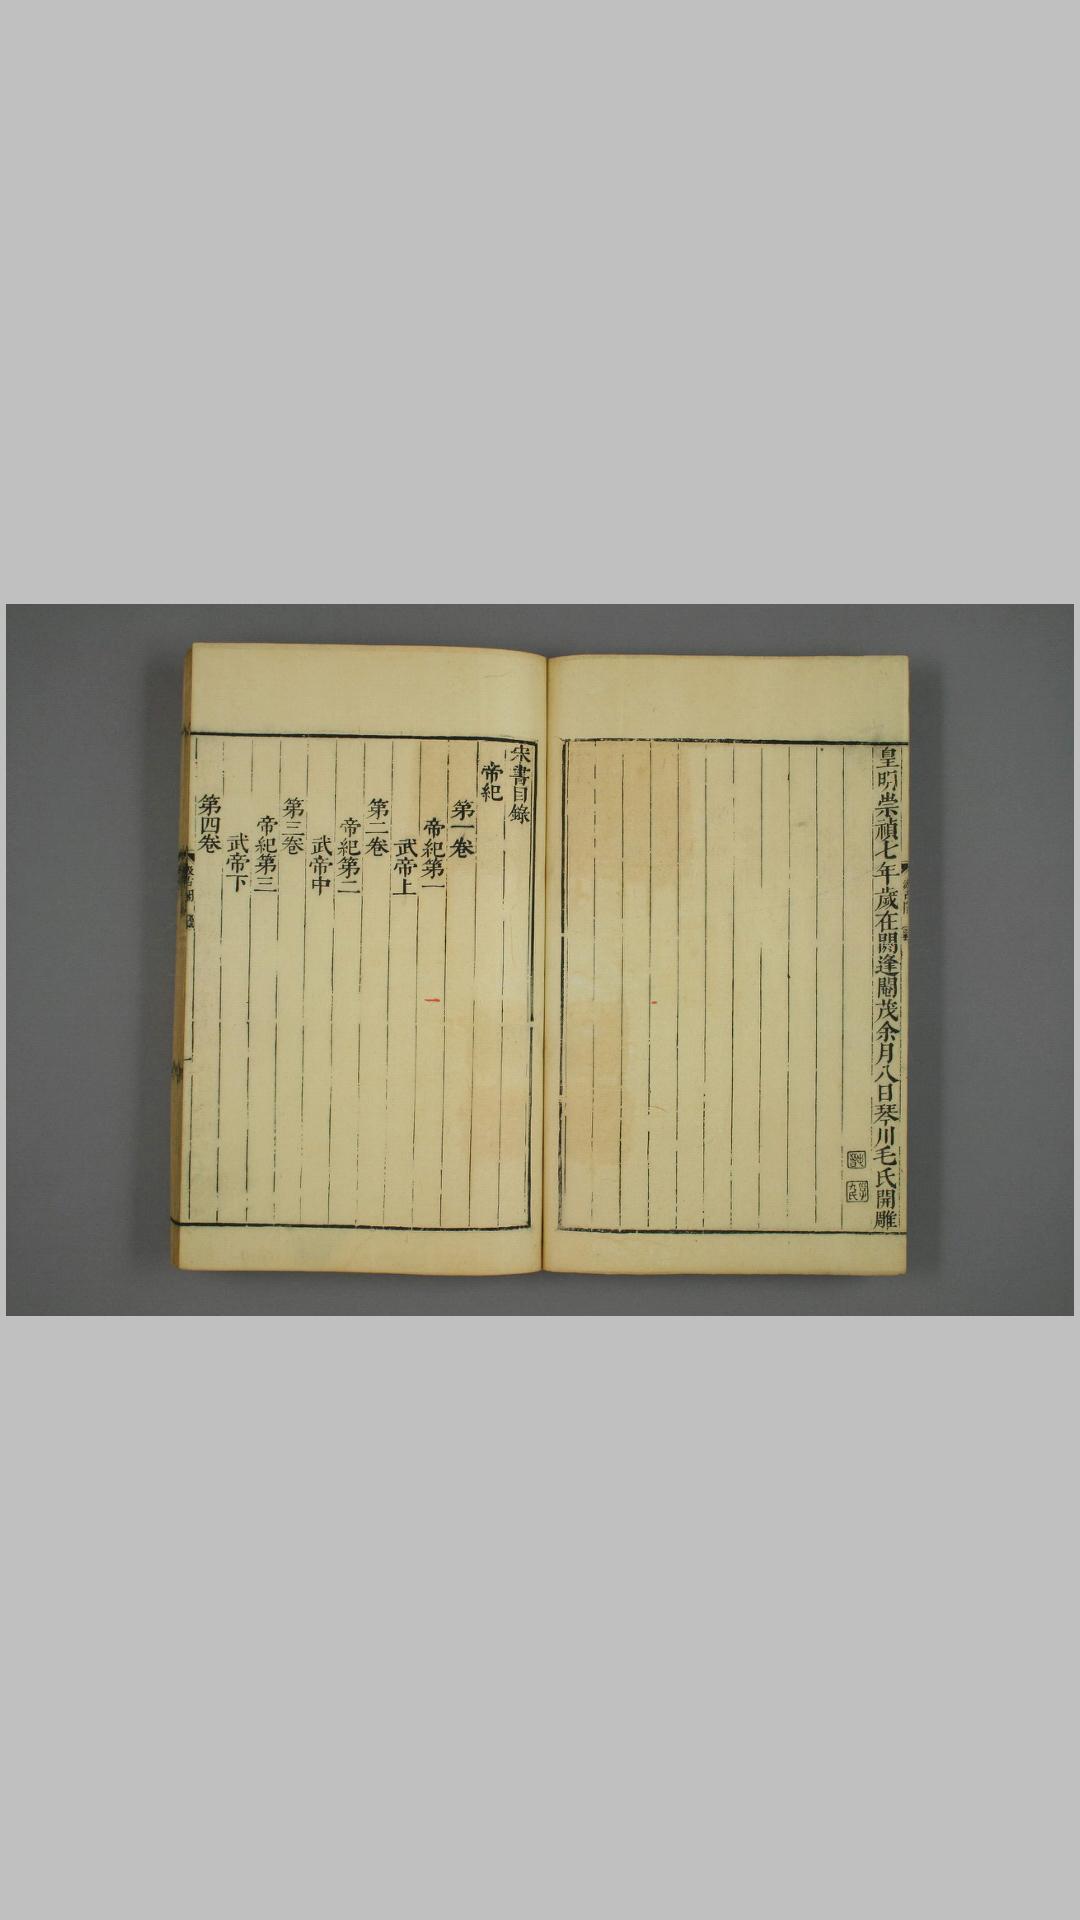 皇明崇禎七年歲在閼逢閹茂余月八日琴川毛氏開雕
宋書目錄
帝紀
第一卷
帝紀第一
武帝上
第二卷
帝紀第二
武帝中
第三卷
帝紀第三
武帝下
第四卷